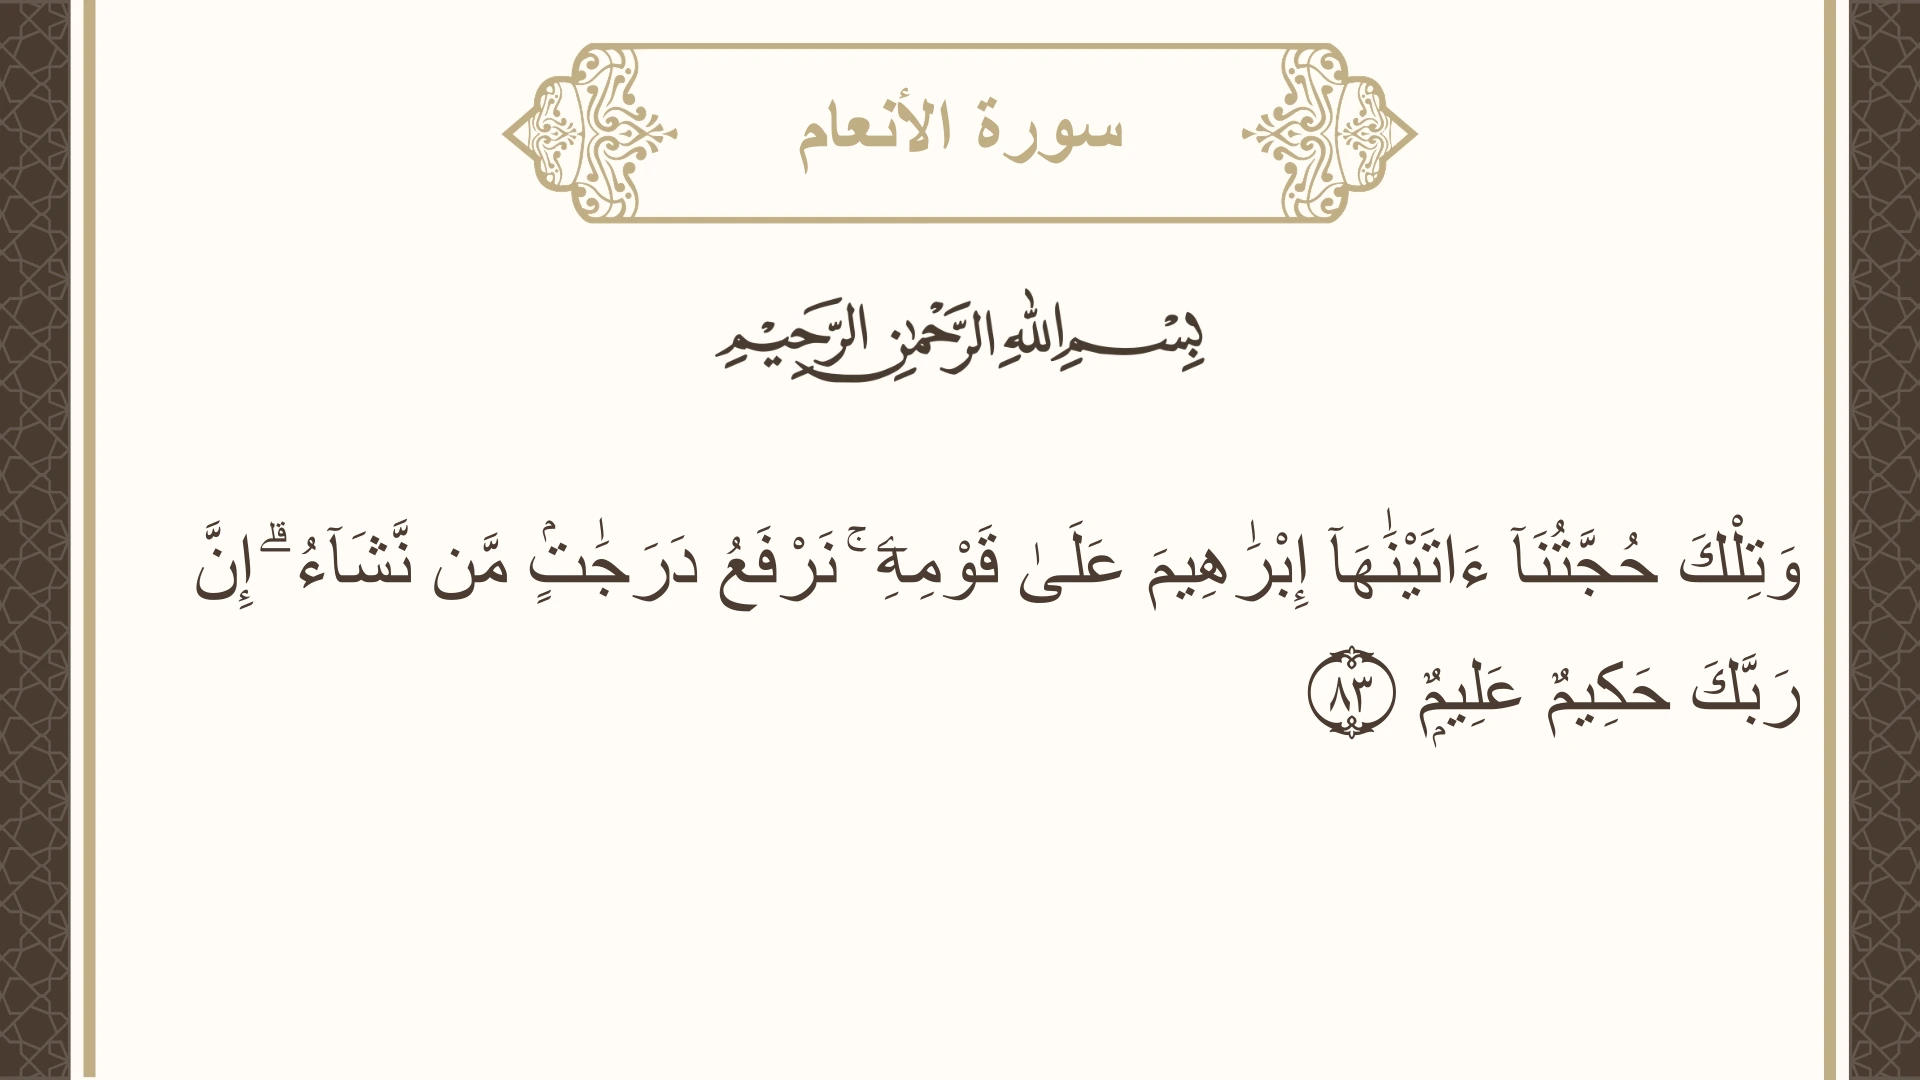 سورة الأنعام
بِسْمِ اللهِ الرَّحْمٰنِ الرَّحِيْمِ
وَتِلْكَ حُجَّتُنَآ ءَاتَيْنَٰهَآ إِبْرَٰهِيمَ عَلَىٰ قَوْمِهِۦ ۚ نَرْفَعُ دَرَجَٰتٍۢ مَّن نَّشَآءُ ۗ إِنَّ
رَبَّكَ حَكِيمٌ عَلِيمٌۭ ٨٣